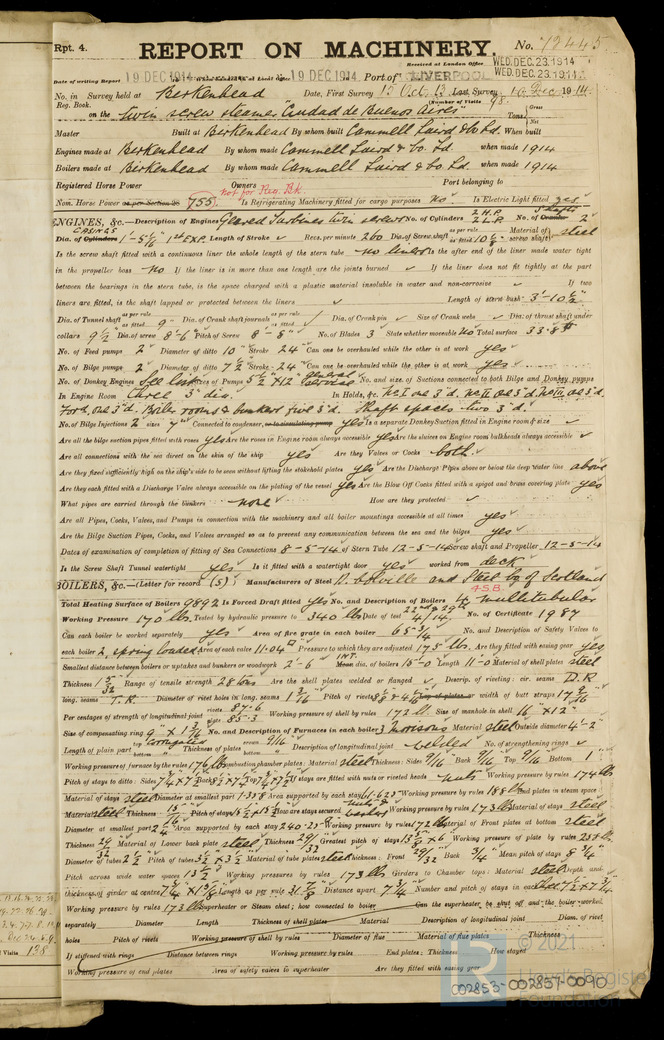 Rpt. 4.
REPORT ON MACHINERY.
No. 72445
Received at London Office WED. DEC. 23. 1914
WED. DEC. 23. 1914
Date of writing Report 19 DEC 1914 When handed in at Local Office 19 DEC 1914. Port of LIVERPOOL
No. in Survey held at Berkenhead Date, First Survey 15 Oct. 13 Last Survey 16 Dec 1914
Reg. Book. (Number of Visits 98.
on the twin screw steamer "Ciudad de Buenos Aires" Tons Gross Net
Master Built at Berkenhead By whom built Cammell Laird & Co. Ld. When built
Engines made at Berkenhead By whom made Cammell Laird & Co. Ld. when made 1914
Boilers made at Berkenhead By whom made Cammell Laird & Co. Ld. when made 1914
Registered Horse Power Owners Port belonging to
not for Reg. Bk.
Nom. Horse Power as per Section 28 755 Is Refrigerating Machinery fitted for cargo purposes no. Is Electric Light fitted yes
ENGINES, &c.—Description of Engines Geared Turbines twin screws No. of Cylinders 2 H.P. 2 L.P. No. of Cranks Shafts 2
Dia. of Cylinders CASINGS 1'-5 1/16" 1st EXP. Length of Stroke Revs. per minute 260 Dia. of Screw shaft as per rule as fitted 10 1/8 Material of screw shaft steel
Is the screw shaft fitted with a continuous liner the whole length of the stern tube no liners Is the after end of the liner made water tight
in the propeller boss no If the liner is in more than one length are the joints burned If the liner does not fit tightly at the part
between the bearings in the stern tube, is the space charged with a plastic material insoluble in water and non-corrosive If two
liners are fitted, is the shaft lapped or protected between the liners Length of stern bush 3'-10 1/2"
Dia. of Tunnel shaft as per rule as fitted 9 Dia. of Crank shaft journals as per rule as fitted Dia. of Crank pin Size of Crank webs Dia. of thrust shaft under
collars 9 1/2" Dia. of screw 8'-6" Pitch of Screw 8'-8" No. of Blades 3 State whether moveable No Total surface 33.8
No. of Feed pumps 2 Diameter of ditto 10" Stroke 24" Can one be overhauled while the other is at work yes
No. of Bilge pumps 2 Diameter of ditto 7 1/2" Stroke 24" Can one be overhauled while the other is at work yes
No. of Donkey Engines See list Sizes of Pumps 5 1/2 x 12 General Service No. and size of Suctions connected to both Bilge and Donkey pumps
In Engine Room three 3" dia. In Holds, &c. No. I one 3" d. No. II one 3" d. No. III one 3" d.
Ford. one 3" d. Boiler rooms & bunkers five 3" d. Shaft spaces two 3" d.
No. of Bilge Injections 2 sizes 7" Connected to condenser, or to circulating pump yes Is a separate Donkey Suction fitted in Engine room & size
Are all the bilge suction pipes fitted with roses yes Are the roses in Engine room always accessible yes Are the sluices on Engine room bulkheads always accessible
Are all connections with the sea direct on the skin of the ship yes Are they Valves or Cocks both.
Are they fixed sufficiently high on the ship's side to be seen without lifting the stokehold plates yes Are the Discharge Pipes above or below the deep water line above
Are they each fitted with a Discharge Valve always accessible on the plating of the vessel yes Are the Blow Off Cocks fitted with a spigot and brass covering plate yes
What pipes are carried through the bunkers none How are they protected
Are all Pipes, Cocks, Valves, and Pumps in connection with the machinery and all boiler mountings accessible at all times yes
Are the Bilge Suction Pipes, Cocks, and Valves arranged so as to prevent any communication between the sea and the bilges yes
Dates of examination of completion of fitting of Sea Connections 8-5-14 of Stern Tube 12-5-14 Screw shaft and Propeller 12-5-14
Is the Screw Shaft Tunnel watertight yes Is it fitted with a watertight door yes worked from deck
BOILERS, &c.—(Letter for record (S) Manufacturers of Steel D. Colville and Steel Co of Scotland
4 S.B.
Total Heating Surface of Boilers 9892 Is Forced Draft fitted yes No. and Description of Boilers 4 multitubular
Working Pressure 170 lbs. Tested by hydraulic pressure to 340 lbs Date of test 22nd & 29th 4/14. No. of Certificate 1987
Can each boiler be worked separately yes Area of fire grate in each boiler 65 3/4 No. and Description of Safety Valves to
each boiler 2. spring loaded Area of each valve 11.04 Pressure to which they are adjusted 175 lbs. Are they fitted with easing gear yes
Smallest distance between boilers or uptakes and bunkers or woodwork 2'-6" INT. Mean dia. of boilers 15'-0 Length 11'-0 Material of shell plates steel
Thickness 1 5/32 Range of tensile strength 28 tons Are the shell plates welded or flanged Descrip. of riveting: cir. seams D.R
long. seams T.R. Diameter of rivet holes in long. seams 1 3/16 Pitch of rivets Lap of plates or width of butt straps 17 3/16
Per centages of strength of longitudinal joint rivets 87.6 plate 85.3 Working pressure of shell by rules 172 lb. Size of manhole in shell 16" x 12"
Size of compensating ring No. and Description of Furnaces in each boiler 3 morisons Material steel Outside diameter 4'-2"
Length of plain part top bottom corrugated Thickness of plates crown bottom 9/16 Description of longitudinal joint welded No. of strengthening rings
Working pressure of furnace by the rules 176 lbs Combustion chamber plates: Material steel Thickness: Sides 9/16 Back 9/16 Top 9/16 Bottom 1"
Pitch of stays to ditto: Sides Back Top If stays are fitted with nuts or riveted heads nuts Working pressure by rules 174 lb
Material of stays steel Diameter at smallest part Area supported by each stay Working pressure by rules 188 lb End plates in steam space
Material steel Thickness Pitch of stays How are stays secured nuts & washers Working pressure by rules 173 lb Material of stays steel
Diameter at smallest part Area supported by each stay Working pressure by rules 172 lb Material of Front plates at bottom steel
Thickness 29/32 Material of Lower back plate steel Thickness 29/32 Greatest pitch of stays Working pressure of plate by rules 238 lb
Diameter of tubes 2 1/2 Pitch of tubes 3 1/2 x 3 1/2 Material of tube plates steel Thickness: Front 29/32 Back 3/4 Mean pitch of stays 8 3/4
Pitch across wide water spaces 13 1/2" Working pressures by rules 173 lb Girders to Chamber tops: Material steel Depth and
thickness of girder at centre Length as per rule Distance apart 7 3/4 Number and pitch of stays in each
Working pressure by rules 173 lb Superheater or Steam chest; how connected to boiler Can the superheater be shut off and the boiler worked
separately Diameter Length Thickness of shell plates Material Description of longitudinal joint Diam. of rivet
holes Pitch of rivets Working pressure of shell by rules Diameter of flue Material of flue plates Thickness
If stiffened with rings Distance between rings Working pressure by rules End plates: Thickness How stayed
Working pressure of end plates Area of safety valves to superheater Are they fitted with easing gear
© 2021
Lloyd's Register
Foundation
002853-002857-0090
Visits 138